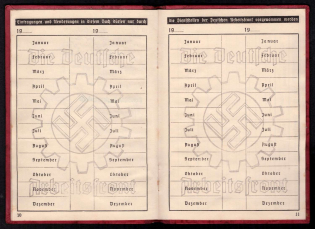 Eintragungen und Aenderungen in diesem Buch dürfen nur durch
19 19
Die Deutsche
Januar Januar
Februar Februar
März März
April April
Mai Mai
Juni Juni
Juli Juli
August August
September September
Oktober Oktober
November November
Dezember Dezember
Arbeitsfront
10
die Dienststellen der Deutschen Arbeitsfront vorgenommen werden
19 19
Die Deutsche
Januar Januar
Februar Februar
März März
April April
Mai Mai
Juni Juni
Juli Juli
August August
September September
Oktober Oktober
November November
Dezember Dezember
Arbeitsfront
11